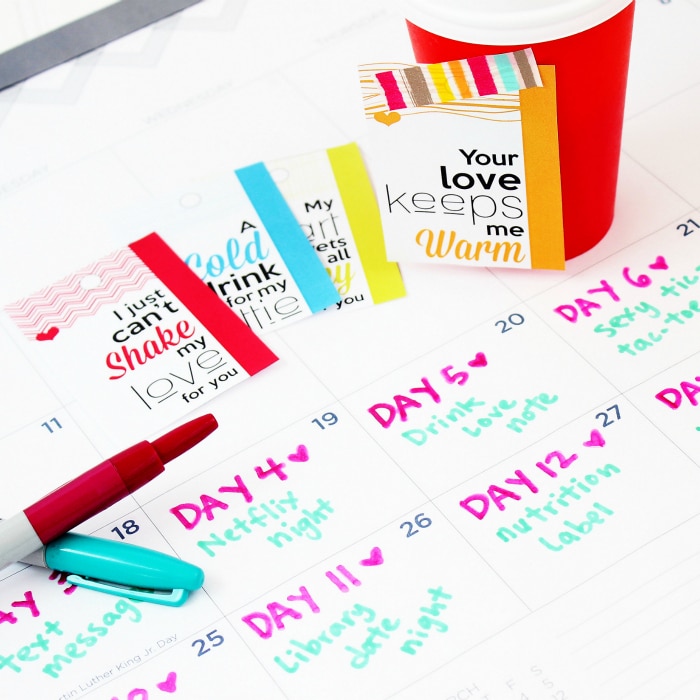 Your
love
keeps
me
Warm
My
all
you
A
Cold
drink
for my
I just
can't
Shake
my
love
for you
21
DAY 6
sexy tic-
tac-toe
20
DAY 5
Drink
love note
19
DAY 4
Netflix
night
27
DAY 12
nutrition
label
11
18
text
message
26
DAY 11
Library
date night
Luther King Jr. Day
25